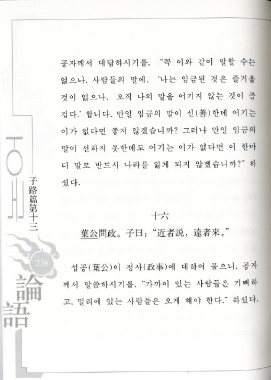 공자께서 대답하시기를, "꼭 이와 같이 말할 수는
없으나, 사람들의 말에, '나는 임금된 것은 즐거울
것이 없으나, 오직 나의 말을 어기지 않는 것이 즐
겁다.' 합니다. 만일 임금의 말이 선(善)한데 어기는
이가 없다면 좋지 않겠습니까? 그러나 만일 임금의
말이 선하지 못한데도 어기는 이가 없다면 이 한마
디 말로 반드시 나라를 잃게 되지 않겠습니까?" 하
셨다.
十六
葉公問政。子曰: "近者説, 遠者來。"
섭공(葉公)이 정사(政事)에 대하여 물으니, 공자
께서 말씀하시기를, "가까이 있는 사람들은 기뻐하
고, 멀리에 있는 사람들은 오게 해야 한다." 라셨다.
子路篇第十三
226
論語